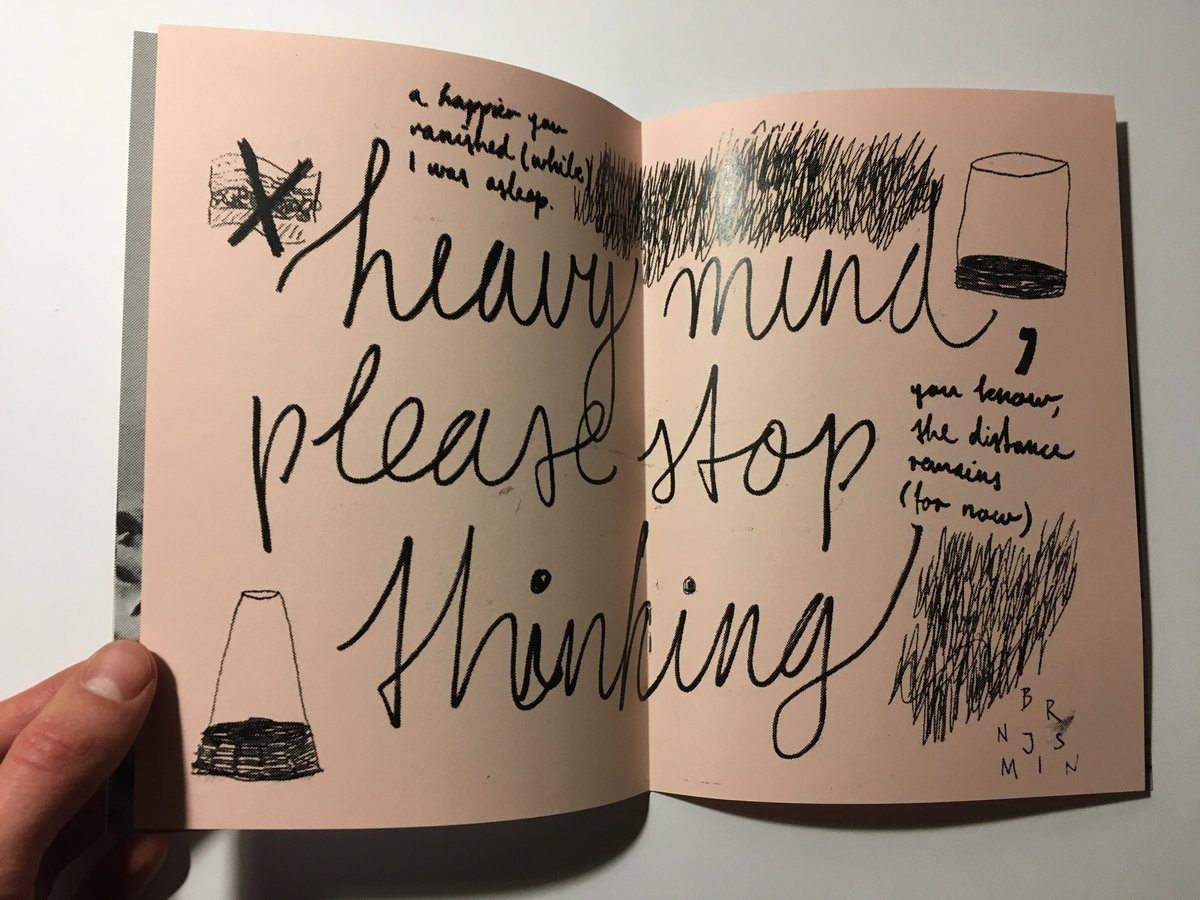 a happier you
vanished (while)
I was asleep.
heavy mind,
please stop
thinking
you know,
the distance
remains
(for now)
B R
N J S
M I N